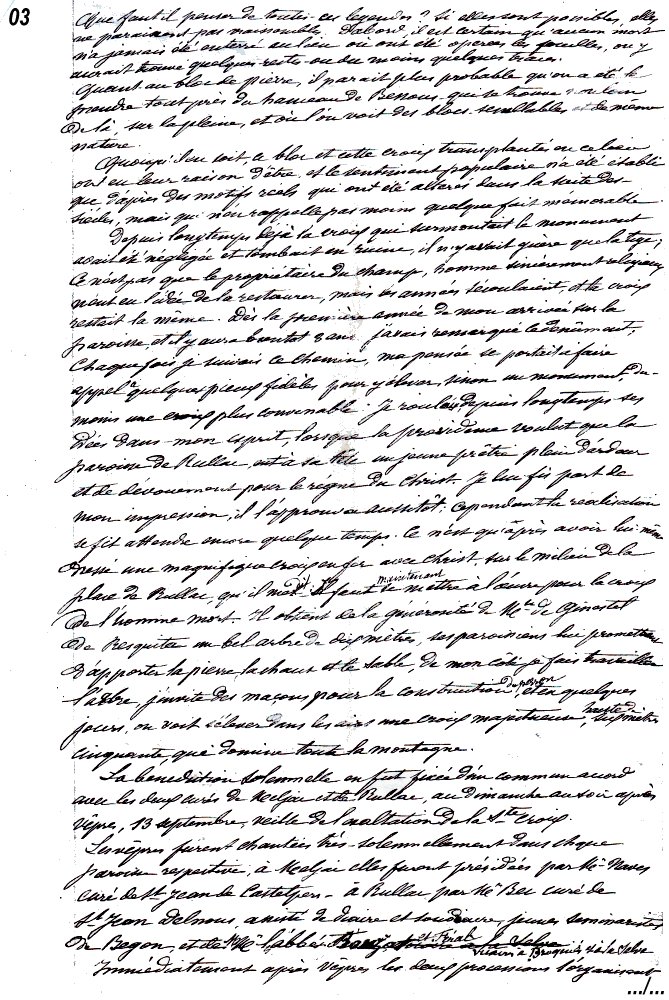 03
Que faut-il penser de toutes ces legendes ? Si elles sont possibles, elles
ne paraissent pas D'abord, il est certain qu'aucun mort
n'a jamais été enterré au lieu où ont été operées les fouilles, on y
aurait trouvé quelques restes ou du moins quelques traces.
Quant au bloc de pierre, il parait plus probable qu'on a été le
prendre tout près du hameau de qui se trouve non loin
de là, sur la pleine, et où l'on voit des blocs semblables et de même
nature.
Quoiqu'il en soit, ce bloc et cette croix transplantés en ce lieu
ont eu leur raison d'être, et le sentiment populaire n'a été établi
que d'après des motifs réels qui ont été alterés dans la suite des
siècles, mais qui n'en rappelle pas moins quelque fait mémorable.
Depuis longtemps déjà la croix qui surmontait le monument
avait été négligée et tombait en ruine, il n'y avait guère que la tige;
Ce n'est pas que le propriétaire du champ, homme sincèrement religieux
n'eut eu l'idée de la restaurer, mais les années s'écoulaient, et la croix
restait la même. Dès la première année de mon arrivée sur la
paroisse, et il y aura bientot 8 ans j'avais remarqué ce dénûment;
Chaque fois je suivais ce chemin, ma pensée se portait à faire
appel à quelques pieux fidèles pour y élever, sinon un monument, du-
moins une croix plus convenable. Je roulais depuis longtemps ces
idées dans mon esprit, lorsque la providence voulut que la
paroisse de Rullac, eut à sa tête un jeune prêtre plein d'ardeur
et de dévouement pour le règne du Christ. Je lui fis part de
mon impression, il l'approuva aussitôt; cependant la réalisation
se fit attendre encore quelque temps. Ce n'est qu'après avoir lui même
dressé une magnifique croix en fer avec Christ, sur le milieu de la
place de Rullac, qu'il me dit Il faut maintenant se mettre à l'œuvre pour la croix
de l'homme mort. Il obtient de la générosité de Mr de Ginestel
de Resquites un bel arbre de dix mètres, ses paroissiens lui promettent
d'apporter la pierre, la chaux et le sable, de mon côté je fais travailler
l'arbre, j'invite des maçons pour la construction du perron, et en quelques
jours, on voit s'élever dans les airs une croix majestueuse, haute de mètres
cinquante, qui domine toute la montagne.
La bénédiction solennelle en fut fixée d'un commun accord
avec les deux curés de Meljac et de Rullac, au dimanche au soir après
vêpres, 13 septembre, veille de l'exaltation de la Ste Croix.
Les vêpres furent chantées très-solennellement dans chaque
paroisse respective, à Meljac elles furent présidées par Mr Naves
curé de St Jean de Castelpers - à Rullac par Mr Bec curé de
St Jean Delnous, assisté de diacre et sous diacre, jeunes seminaristes
de Begon, et de Mr l'abbé et vicaire à Broquiès à la Selve
Immédiatement après vêpres les deux processions s'organisent
.../...